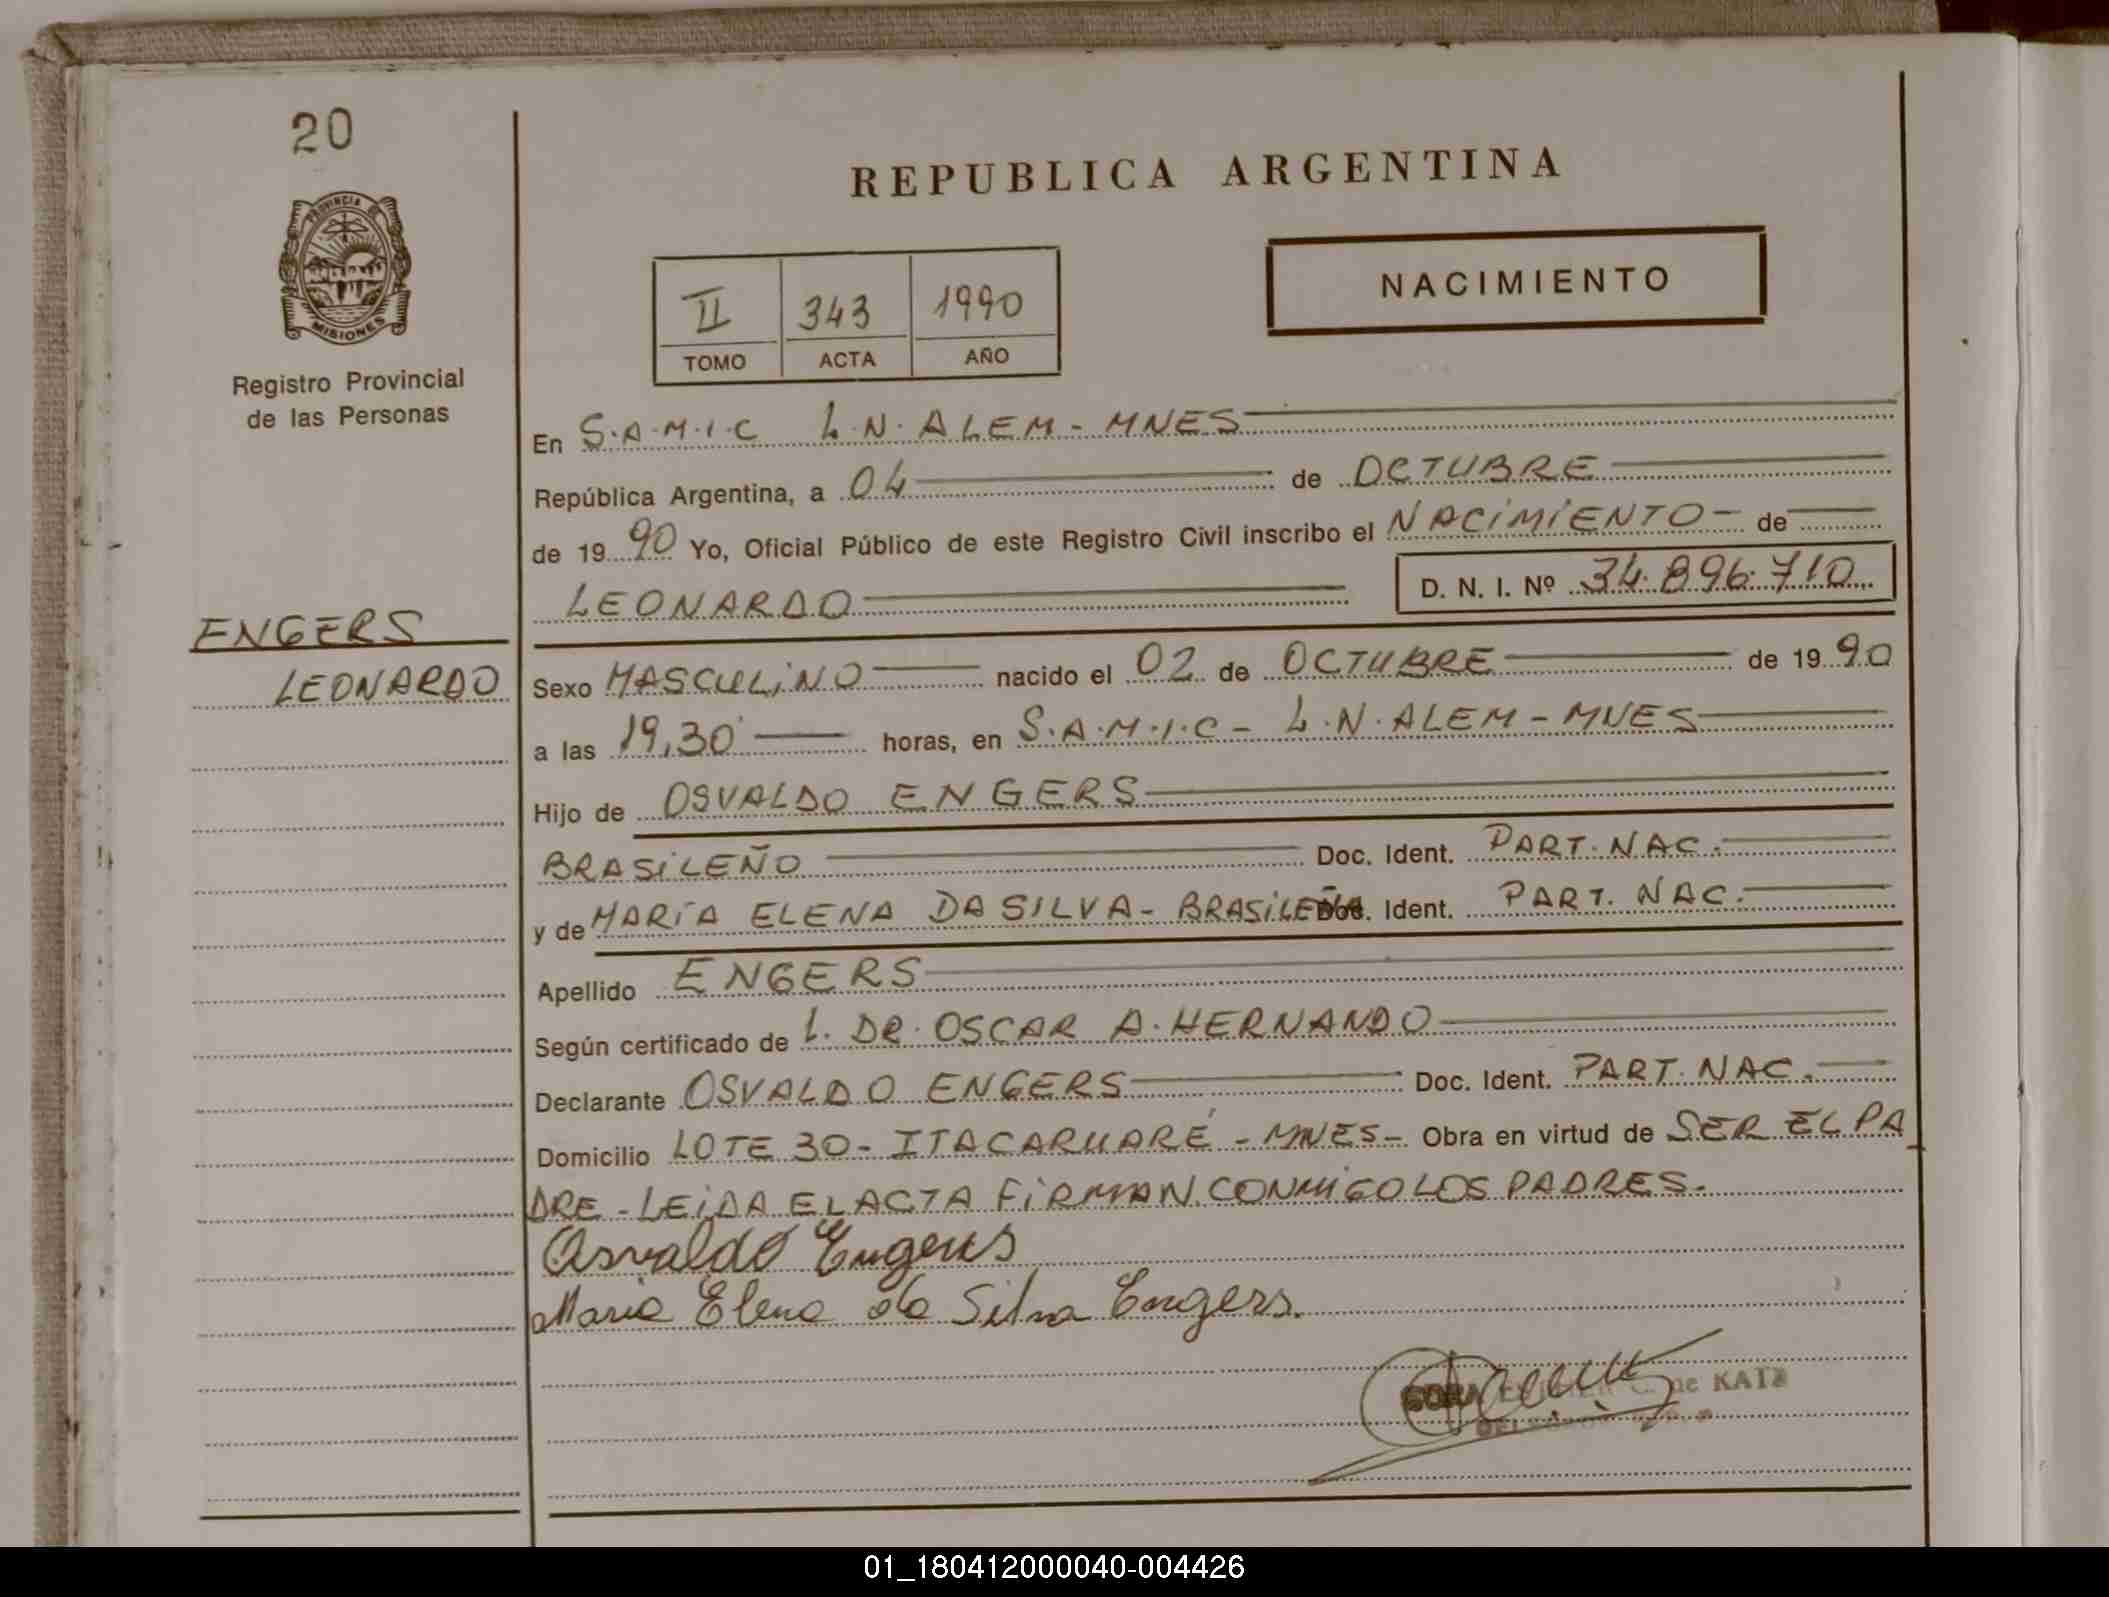 20
PROVINCIA DE
MISIONES
Registro Provincial
de las Personas
ENGERS
LEONARDO
REPUBLICA ARGENTINA
NACIMIENTO
II 343 1990
TOMO ACTA AÑO
En S.A.M.I.C L.N.ALEM - MNES
República Argentina, a 04 de OCTUBRE
de 19 90 Yo, Oficial Público de este Registro Civil inscribo el NACIMIENTO - de
LEONARDO D. N. I. Nº 34.896.710
Sexo MASCULINO nacido el 02 de OCTUBRE de 19 90
a las 19,30 horas, en S.A.M.I.C - L.N.ALEM - MNES
Hijo de OSVALDO ENGERS
BRASILEÑO Doc. Ident. PART. NAC.
y de MARÍA ELENA DA SILVA - BRASILEÑA Doc. Ident. PART. NAC.
Apellido ENGERS
Según certificado de L. DR. OSCAR A. HERNANDO
Declarante OSVALDO ENGERS Doc. Ident. PART. NAC.
Domicilio LOTE 30 - ITACARUARÉ - MNES - Obra en virtud de SER EL PA
DRE - LEIDA EL ACTA FIRMAN CONMIGO LOS PADRES.
Osvaldo Engers
Maria Elena da Silva Engers.
de KATZ
01_180412000040-004426